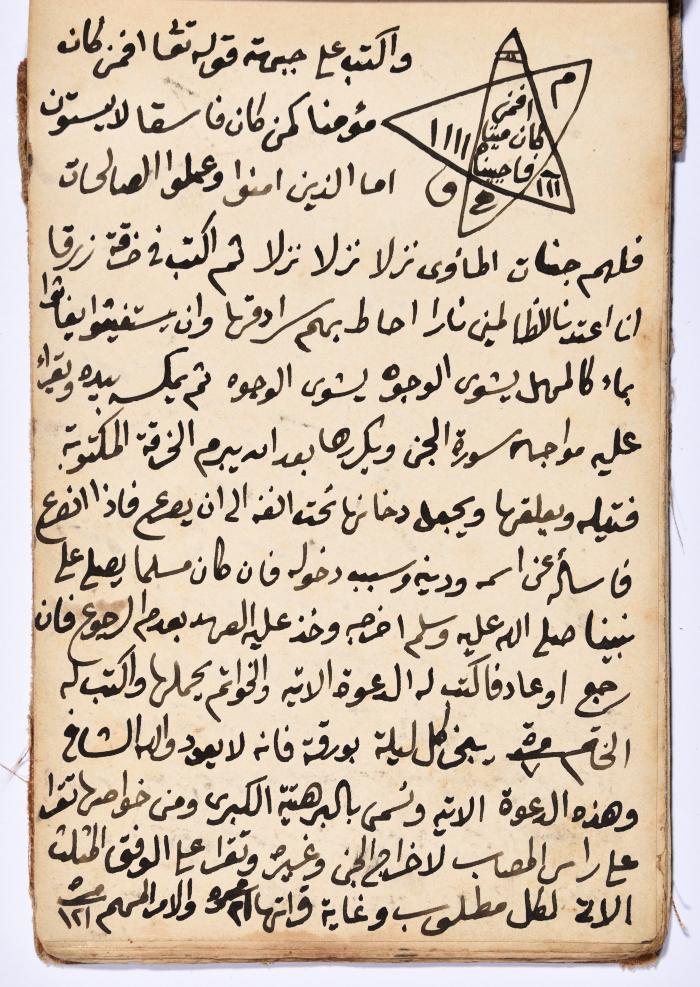 واكتب على جبهته قوله تعا افمن كان
مؤمنا كمن كان فاسقا لا يستون
اما الذين امنوا وعملوا الصالحات
م
افمن
كان ميتا
فاحييناه
ااا
اااا
و
فلهم جنات الماوى نزلا نزلا نزلا ثم اكتب في خرقة زرقا
انا اعتدنا للظالمين نارا احاط بهم سرادقها وان يستغيثوا يغاثوا
بماء كالمهل يشوى الوجوه يشوى الوجوه ثم يمكسه بيده ويقراء
عليه مواجهة سورة الجن ويكررها بعد انه يبرم الخرقة المكتوبة
فتيله ويعلقها ويجعل دخانها تحت انفه الى ان يصرع فاذا انصرع
فاساله عن اسمه ودينه وسبب دخوله فان كان مسلما يصلي على
نبينا صلى الله عليه وسلم اخرجه وخذ عليه العهد بعدم الرجوع فان
رجع او عاد فاكتب له الدعوة الاتيه والخواتم يحملها واكتب له
الخاتم كل ليلة بورقة فانه لا يعود والله الشافي
وهذه الدعوة الاتيه وتسمى بالبرهتية الكبرى ومن خواصها تقرا
على راس المصاب لاخراج الجن وغيره وتقرا على الوفق المثلث
الاتى لكل مطلوب وغاية قراتها ٢١ مره والامر المهم ١٢١ مره